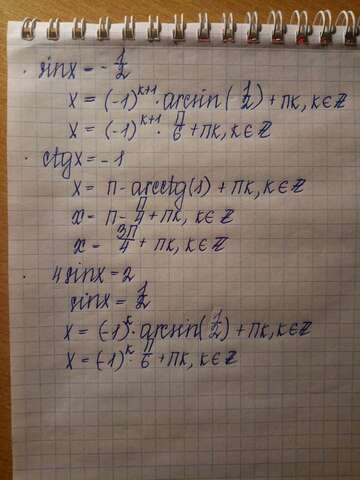 sinx = -1/2
x = (-1)^{k+1} · arcsin(1/2) + πk, k∈Z
x = (-1)^{k+1} · π/6 + πk, k∈Z
ctgx = -1
x = π - arcctg(1) + πk, k∈Z
x = π - π/4 + πk, k∈Z
x = 3π/4 + πk, k∈Z
4sinx = 2
sinx = 1/2
x = (-1)^k · arcsin(1/2) + πk, k∈Z
x = (-1)^k · π/6 + πk, k∈Z